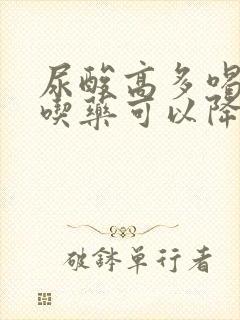 尿酸高多喝
喫藥可以降
破鉢单行者